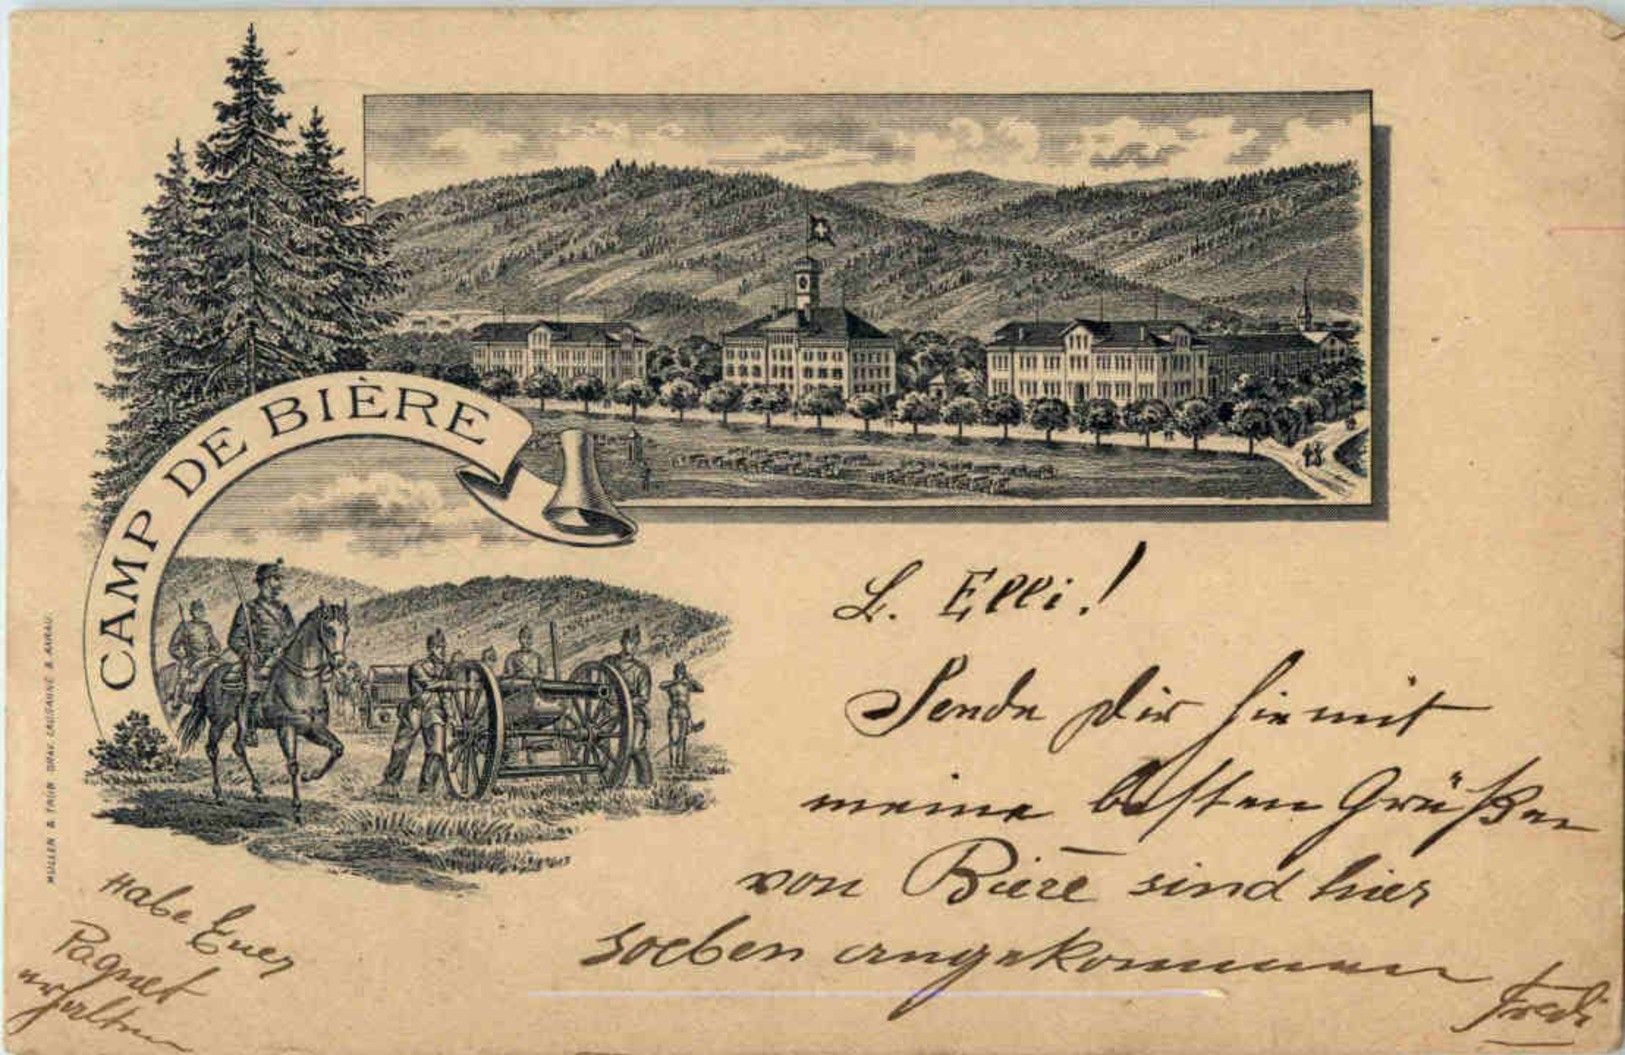 CAMP DE BIÈRE
MÜLLER & TRÜB GRAV. LAUSANNE & AARAU.
L. Elli!
Sende Dir hiemit
meine besten Grüßen
von Bière sind hier
soeben angekommen
Fredi
Habe Euer
Paquet
erhalten